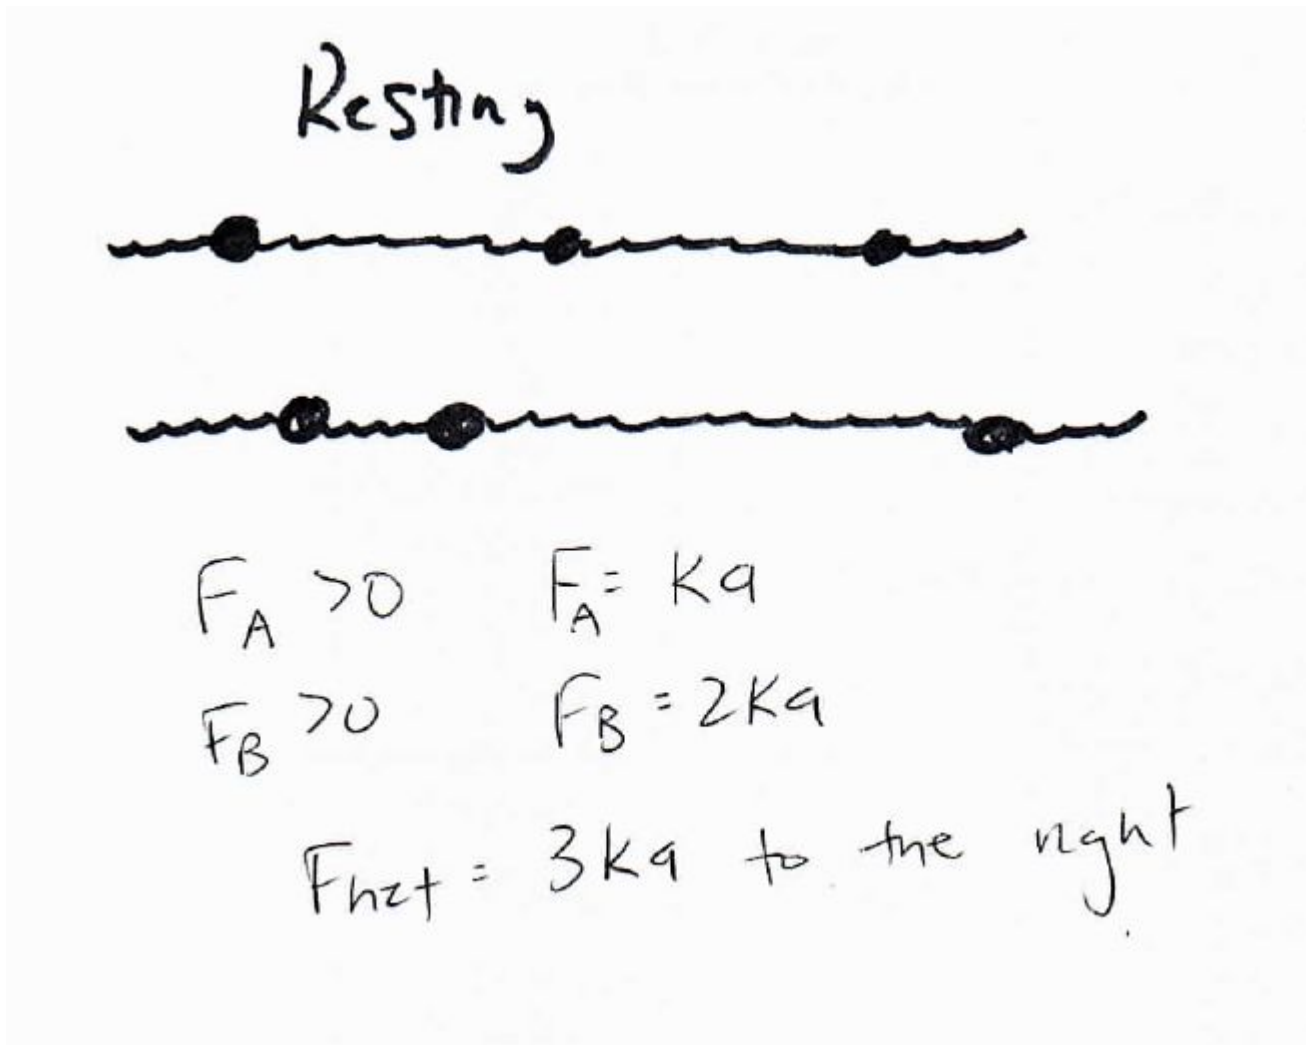 Resting
F_A >0 F_A = Ka
F_B >0 F_B = 2Ka
Fnet = 3ka to the right.